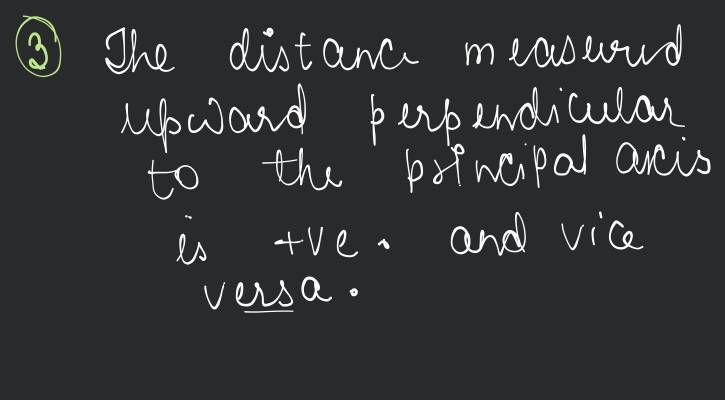 3 The distance measured
upward perpendicular
to the principal axis
is +ve. and vice
versa.